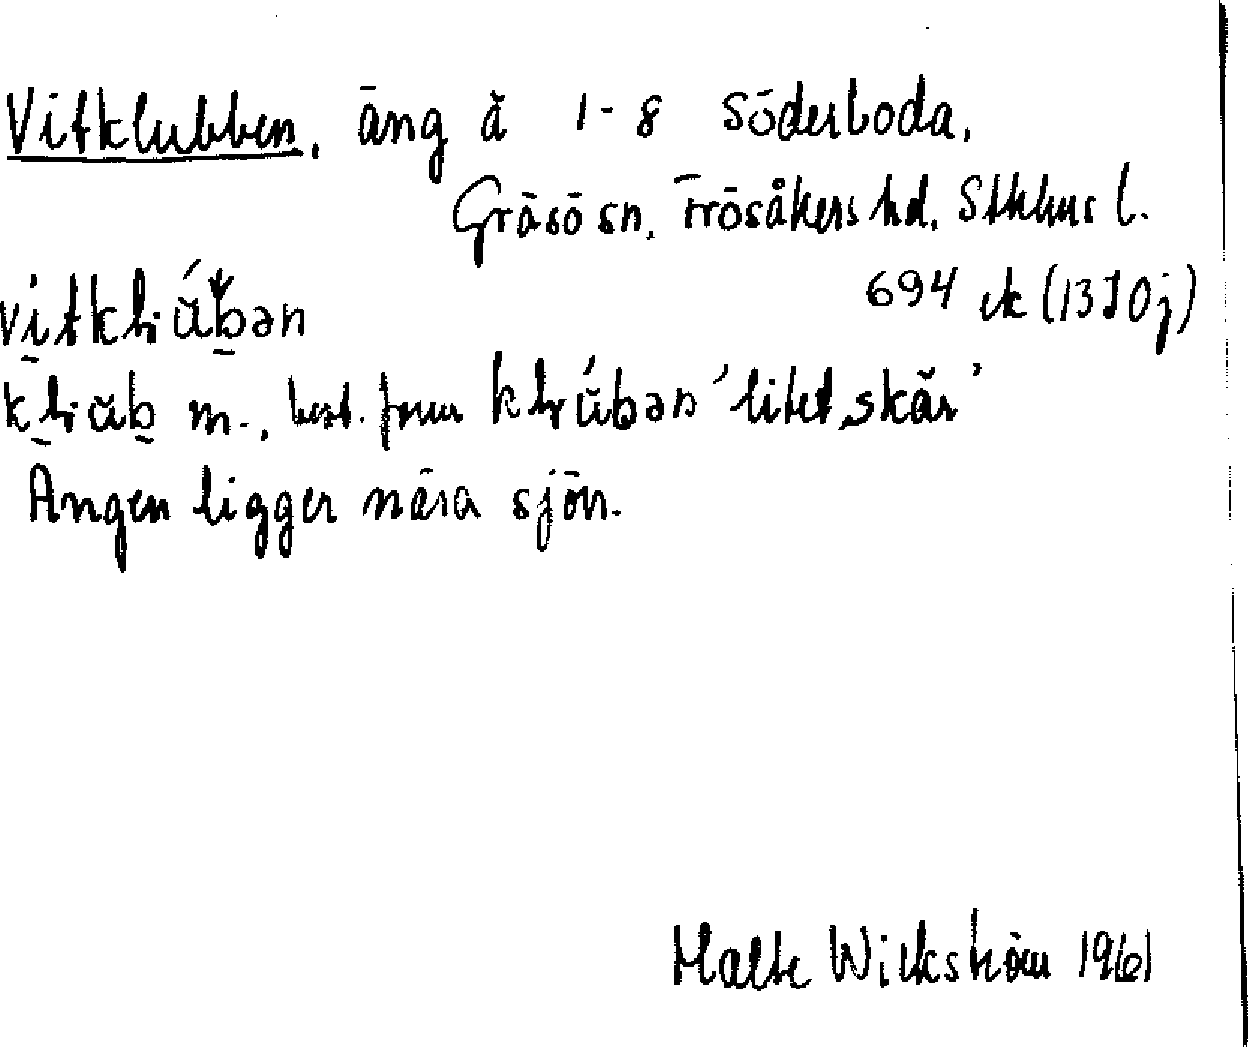 Vitklubben, äng å 1-8 Söderboda,
Gräsö sn, Frösåkers hd, Sthlms l.
694 ek (13I0j)
best. form 'litet skär'
Ängen ligger nära sjön.
Malte Wickström 1961